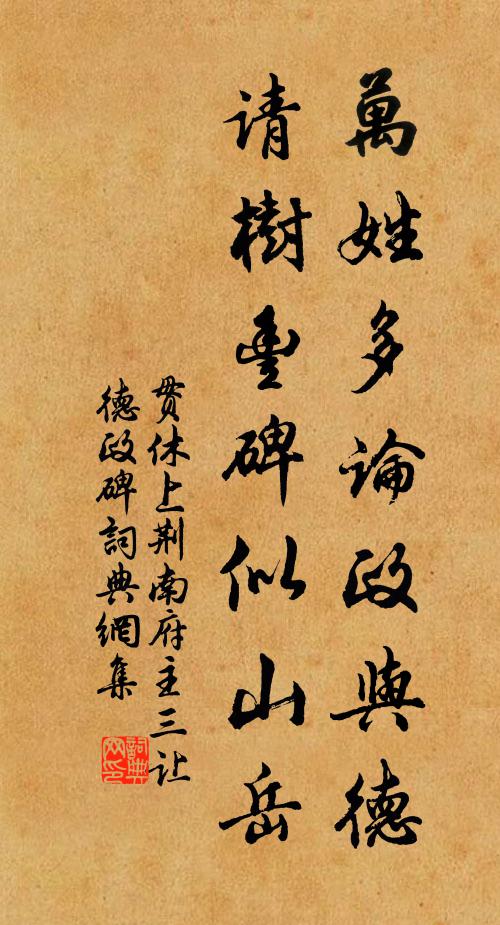 萬姓多論政與德
请樹豊碑似山岳
贯休上荆南府主三让
德政碑詞典網集
詞典
网印